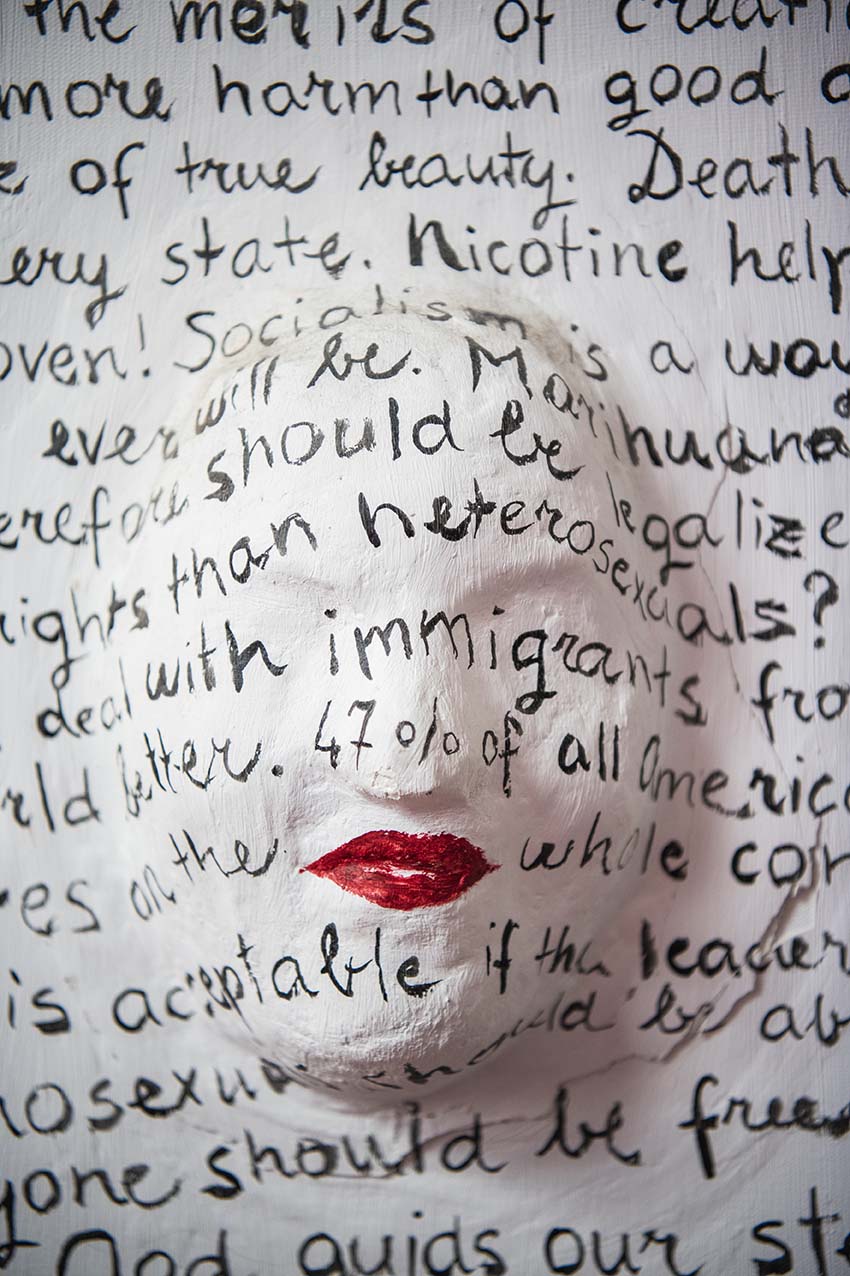 the merits of creati
more harm than good
of true beauty. Death
ery state. Nicotine help
oven! Socialism is a way
ever will be. Marihuana
erefore should be legalize
rights than heterosexuals?
deal with immigrants fro
rld better. 47% of all Americ
res on the whole con
is acceptable if the leader
osexual should be ab
yone should be free
God guids our st